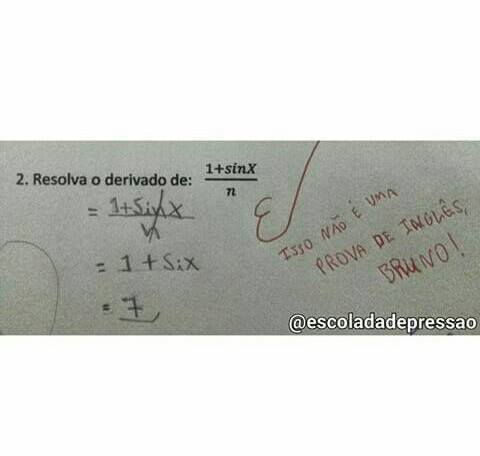 2. Resolva o derivado de: 1+sinX
n
= 1+sinx
n
= 1+six
= 7
E
ISSO NÃO É UMA
PROVA DE INGLÊS,
BRUNO!
@escoladadepressao